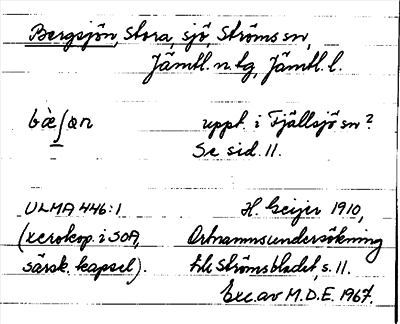 Bergsjön, Stora, sjö, Ströms sn,
Jämtl. n. tg, Jämtl. l.
bæ̀ʃøn uppt. i Fjällsjö sn?
Se sid. 11.
ULMA 446:1 H. Geijer 1910,
(xerokop. i SOA, Ortnamnsundersökning
särsk. kapsel). till Strömsbladet s. 11.
Exc. av M.D.E. 1967.